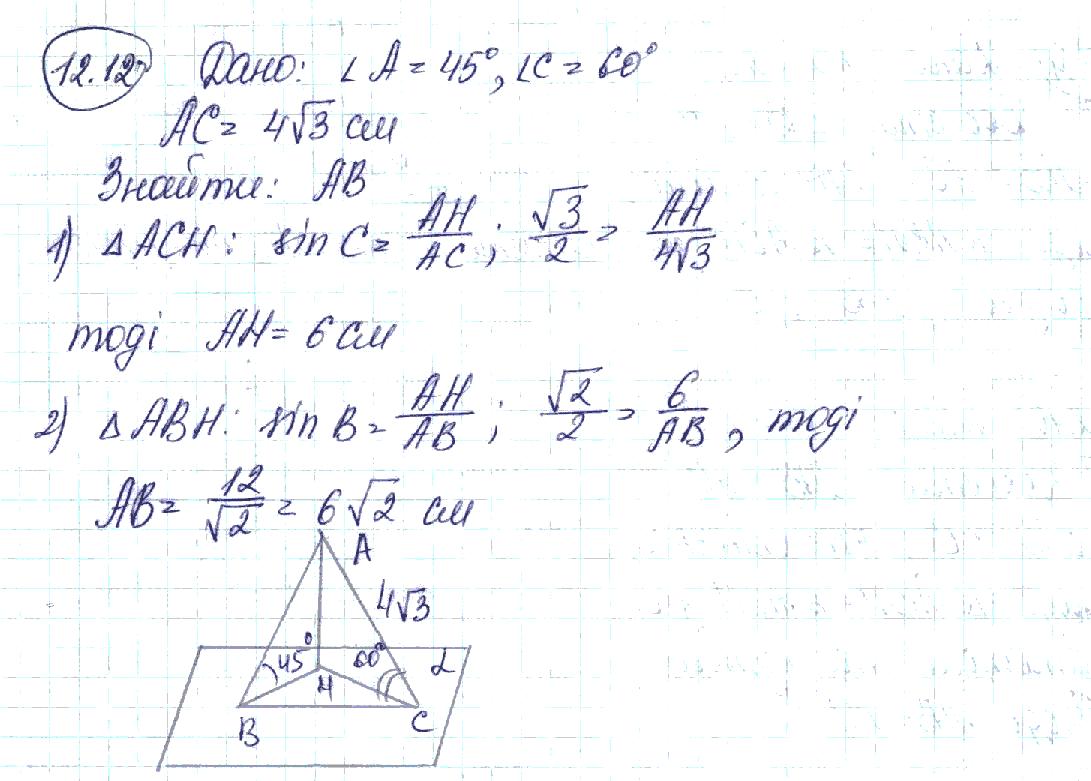 12.12 Дано: ∠A = 45°, ∠C = 60°
AC = 4√3 см
Знайти: AB
1) △ACH: sin C = AH/AC; √3/2 = AH/4√3
тоді AH = 6 см
2) △ABH: sin B = AH/AB; √2/2 = 6/AB, тоді
AB = 12/√2 = 6√2 см
A
4√3
45° 60° α
H
B C